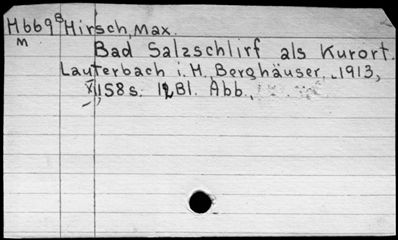 H669B Hirsch, Max.
M
Bad Salzschlirf als Kurort.
Lauterbach i. H., Berghäuser, 1913,
X, 158 s. 12 Bl. Abb.,